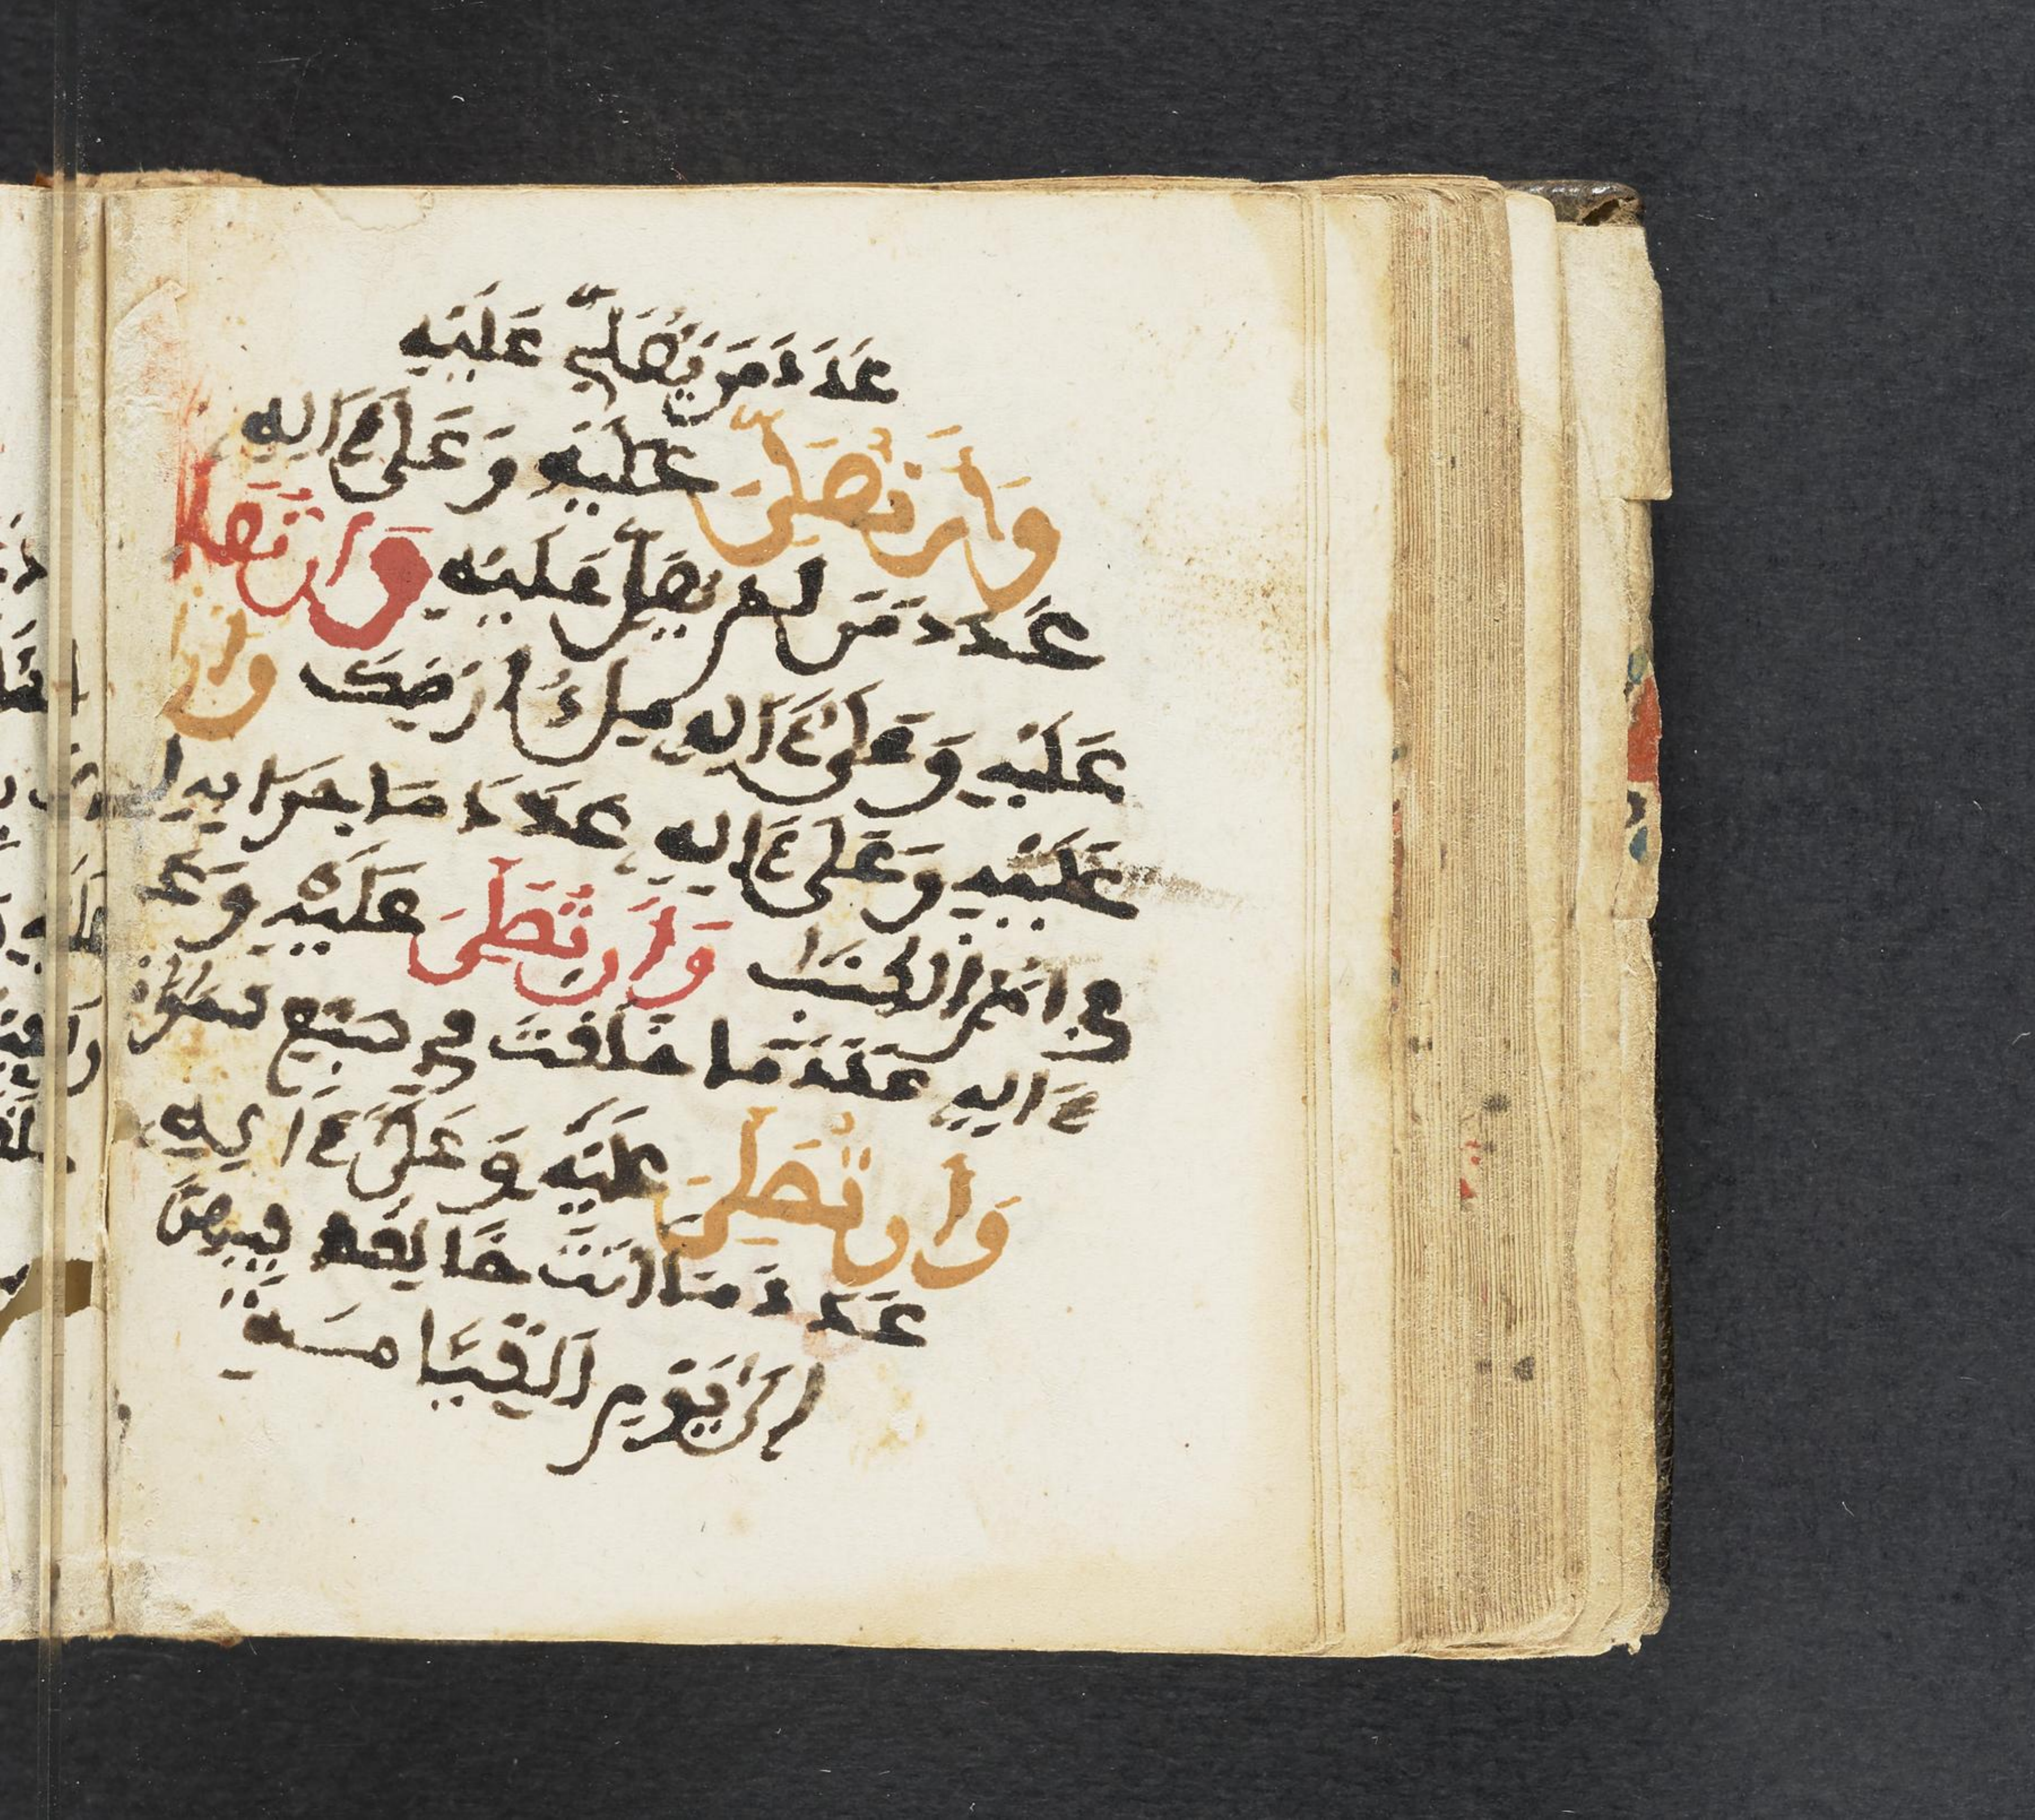 عَدَدَ مَن يُصَلِّي عَلَيْهِ
وَأَن تُصَلِّيَ عَلَيْهِ وَعَلَىٰ ءَالِهِ
عَدَدَ مَن لَم يُصَلِّ عَلَيْهِ وَأَن تُصَلِّيَ
عَلَيْهِ وَعَلَىٰ ءَالِهِ مِلْءَ أَرْضِكَ وَأَن
عَلَيْهِ وَعَلَىٰ ءَالِهِ عَدَدَ مَا جَرَا بِهِ
فِي أُمِّ الْكِتَابِ وَأَن تُصَلِّيَ عَلَيْهِ وَعَلَىٰ
ءَالِهِ عَدَدَ مَا خَلَقْتَ فِي سَبْعِ سَمَوَاتِ
وَأَن تُصَلِّيَ عَلَيْهِ وَعَلَىٰ ءَالِهِ
عَدَدَ مَا أَنْتَ خَالِقُهُ فِيهِنَّ
إِلَىٰ يَوْمِ الْقِيَامَةِ